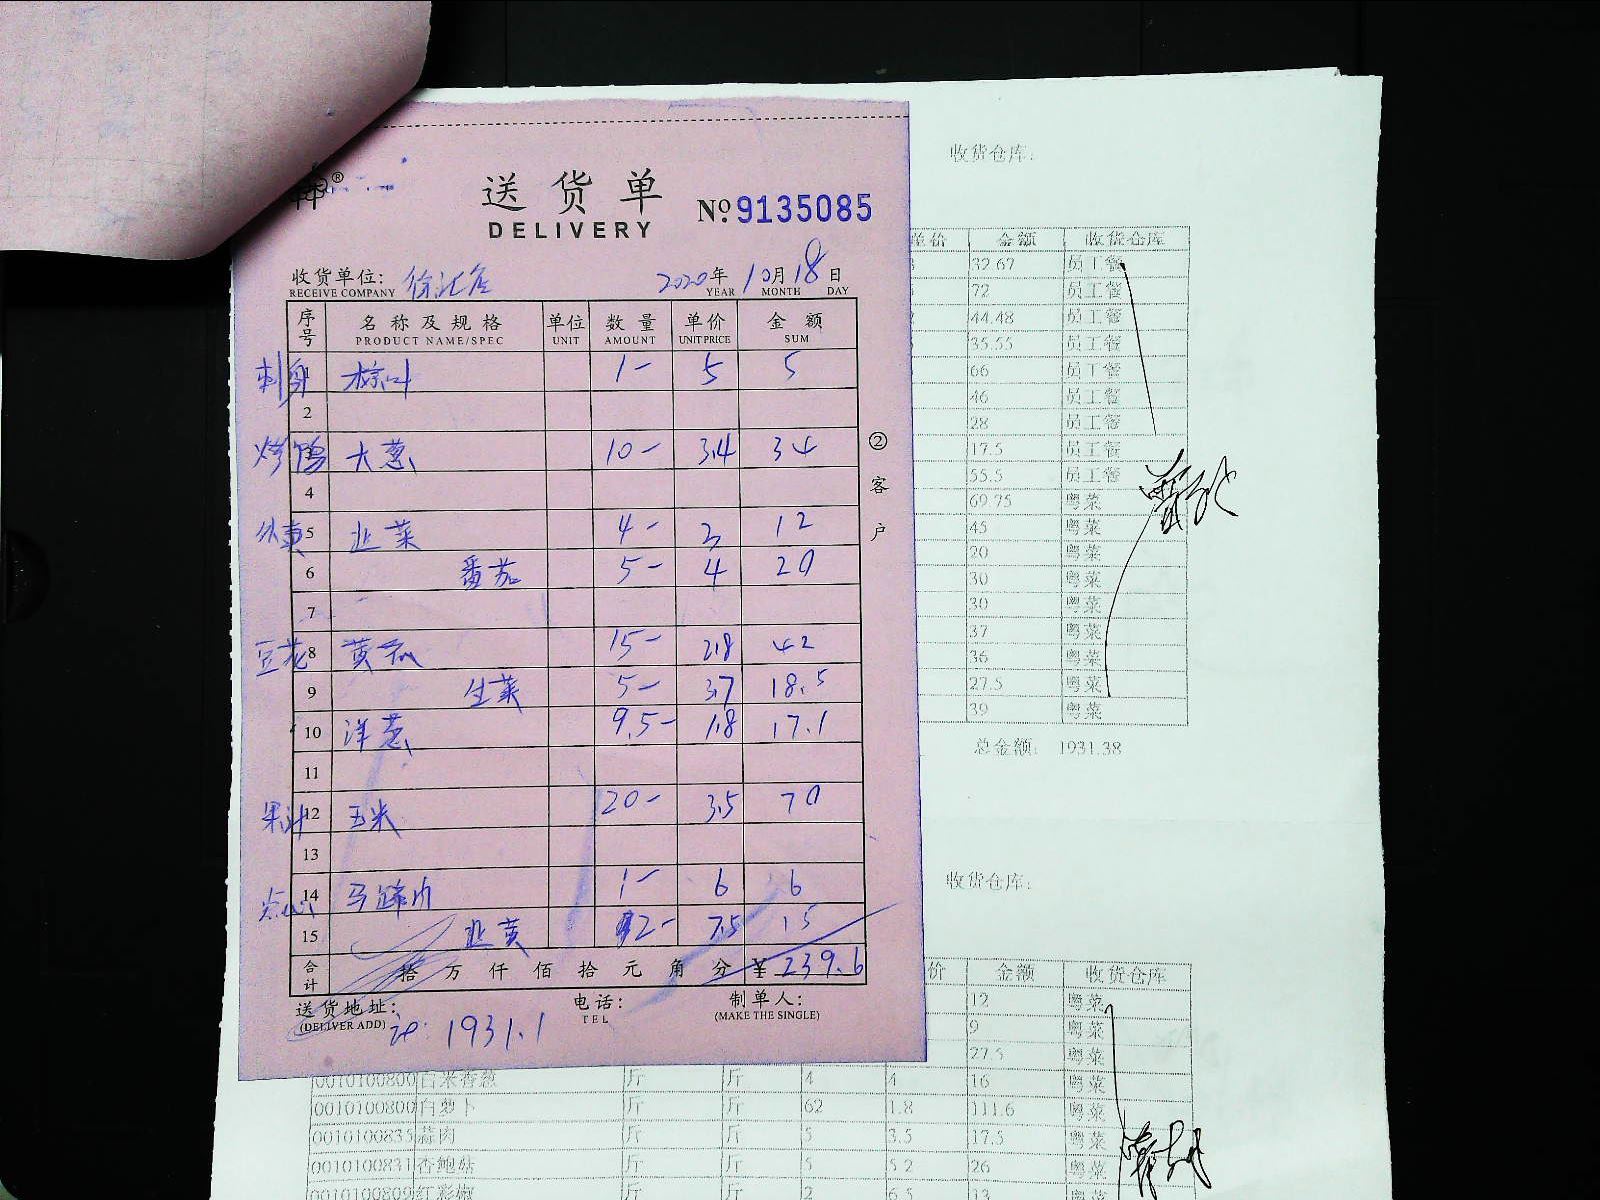 送货单
DELIVERY
№ 9135085
收货单位: 徐汇店 2020年10月18日
RECEIVE COMPANY YEAR MONTH DAY
序号 名称及规格 单位 数量 单价 金额
PRODUCT NAME/SPEC UNIT AMOUNT UNIT PRICE SUM
刺身 棕叶 1- 5 5
2
烤鸭 大葱 10- 3.4 34
4
外卖 5 韭菜 4- 3 12
6 番茄 5- 4 20
7
豆花 8 黄瓜 15- 2.8 42
9 生菜 5- 3.7 18.5
10 洋葱 9.5- 1.8 17.1
11
果汁 12 玉米 20- 3.5 70
13
点心 14 马蹄肉 1- 6 6
15 韭黄 2- 7.5 15
合计 拾万仟佰拾元角分 ¥ 239.6
送货地址: 电话: 制单人:
(DELIVER ADD) TEL (MAKE THE SINGLE)
计: 1931.1
② 客户
收货仓库:
单价 金额 收货仓库
32.67 员工餐
72 员工餐
44.48 员工餐
35.55 员工餐
66 员工餐
46 员工餐
28 员工餐
17.5 员工餐
55.5 员工餐
69.75 粤菜
45 粤菜
20 粤菜
30 粤菜
30 粤菜
37 粤菜
36 粤菜
27.5 粤菜
39 粤菜
总金额: 1931.38
收货仓库:
价 金额 收货仓库
12 粤菜
9 粤菜
27.5 粤菜
0010100800 白米香葱 斤 斤 4 4 16 粤菜
0010100800 白萝卜 斤 斤 62 1.8 111.6 粤菜
0010100835 蒜肉 斤 斤 5 3.5 17.5 粤菜
0010100831 香鲍菇 斤 斤 5 5.2 26 粤菜
0010100809 红彩椒 斤 斤 2 6.5 13 粤菜